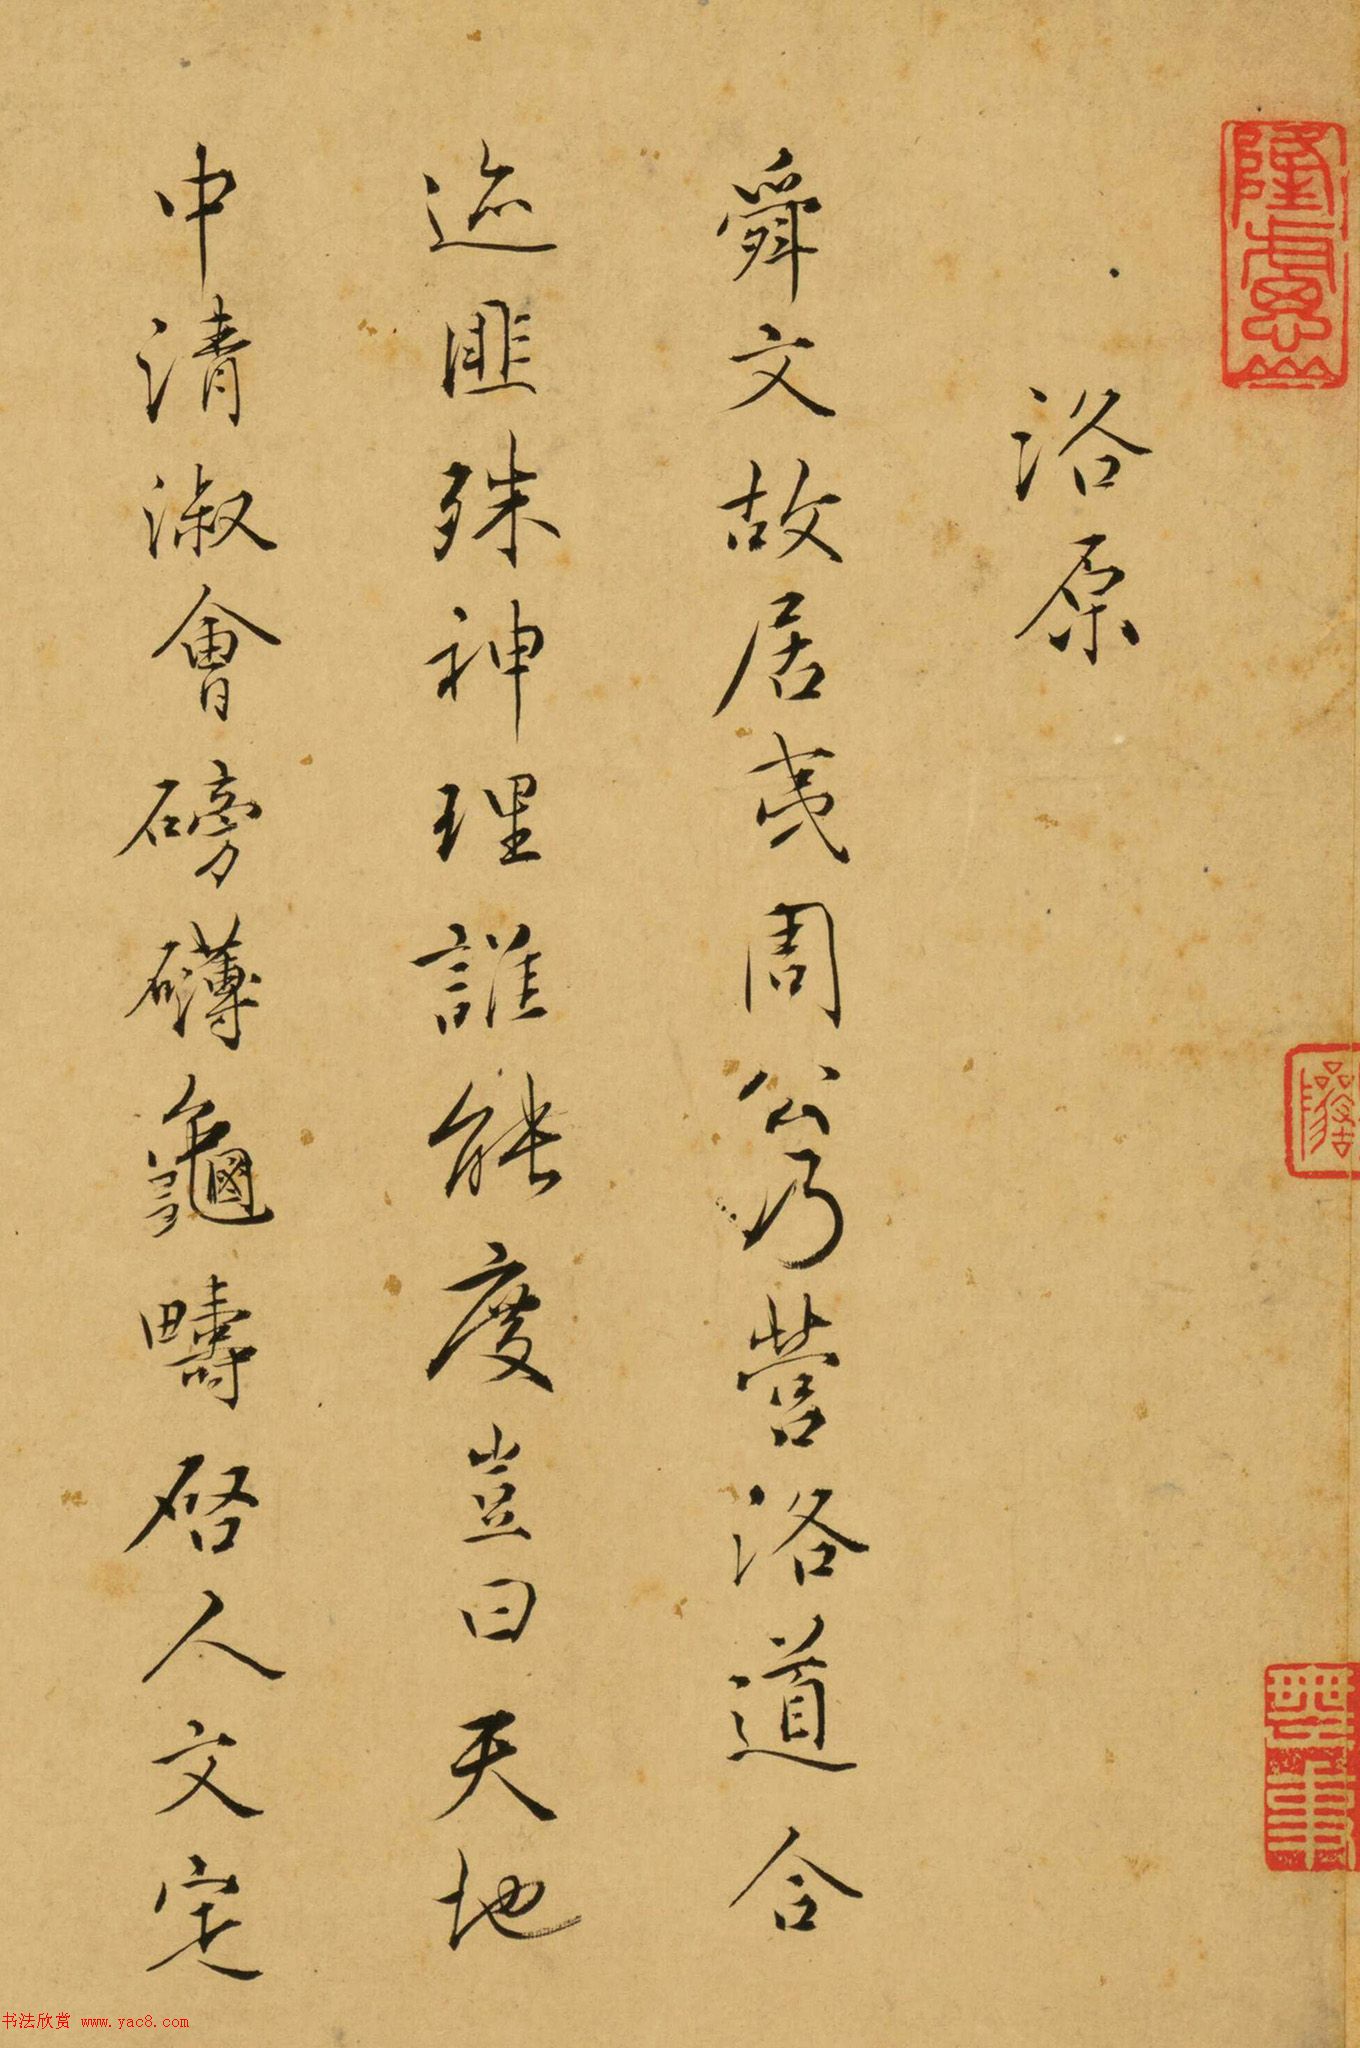 洛原
舜文故居夷周公乃營洛道合
迹匪殊神理誰能度豈曰天地
中清淑會磅礴龜疇啓人文定
隆慮山
書法欣赏 www.yac8.com